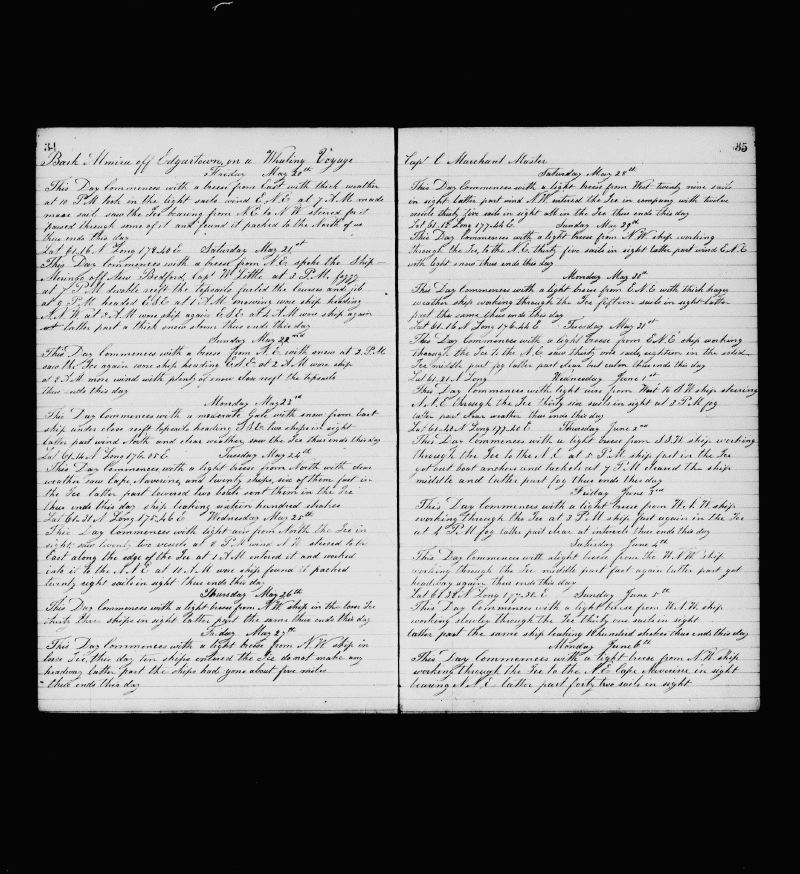 34
Bark Almira off Edgartown, on a Whaling Voyage
Friday May 20th
This Day Commences with a breese from East with thick weather
at 10 P.M took in the light sails wind E.N.E at 7 A.M. made
saw the Ice bearing from N.E to N.W stered for it
passed through some of it and found it packed to the North of us
thus ends this day
Lat 61.16 N Long 178.40 E Saturday May 21st
This Day Commences with a breese from N.E. spoke the Ship
off New Bedford Capt W Little at 3 P.M. foggy
at 7 P.M double reeft the topsails furled the Courses and jib
at 9 P.M headed E.S.E at 1 A.M snowing wore ship heading
N.N.W at 3 A.M wore ship again E.S.E. at 4 A.M wore ship again
latter part a thick snow storm thus ends this day
Sunday May 22nd
This Day Commences with a breese from N.E. with snow at 2 P.M
saw the Ice again wore ship heading E.S.E. at 2 A.M wore ship
at 3 A.M more wind with plenty of snow close reeft the topsails
thus ends this day
Monday May 23d
This Day Commences with a moderate Gale with snow from East
ship under close reeft topsails heading S.S.E. two ships in sight
latter part wind North and clear weather, saw the Ice thus ends this day
Lat 61.14 N Long 176.05 E Tuesday May 24th
This Day Commences with a light breese from North with clear
weather saw Cape Navorine, and twenty ships, six of them fast in
the Ice latter part lowered two boats sent them in the Ice
thus ends this day ship leaking sixteen hundred strokes
Lat 61.31 N Long 178.46 E Wednesday May 25th
This Day Commences with light airs from North the Ice in
sight saw twenty two vessels at 8 P.M wind N.W stered to the
East along the edge of the Ice at 1 A.M entered it and worked
into it to the N.N.E at 11 A.M wore ship found it packed
twenty eight sails in sight thus ends this day
Thursday May 26th
This Day Commences with a light breese from N.W ship in the loose Ice
thirty three ships in sight latter part the same thus ends this day
Friday May 27th
This Day Commences with a light breese from N.W. ship in
loose Ice, this day ten ships entered the Ice do not make any
headway latter part the ships had gone about five miles
thus ends this day
35
Capt C Marchant Master
Saturday May 28th
This Day Commences with a light breese from West twenty nine sails
in sight latter part wind N.W. entered the Ice in company with twelve
vessels thirty five sails in sight all in the Ice thus ends this day
Lat 61.12 Long 177.44 E. Sunday May 29th
This Day Commences with a light breese from N.W ship working
through the Ice, to the N.E. thirty five sails in sight latter part wind E.N.E
with light snow thus ends this day
Monday May 30th
This Day Commences with a light breese from E.N.E with thick hazy
weather ship working through the Ice fifteen sails in sight latter
part the same thus ends this day
Lat 61.16 N Long 176.44 E Tuesday May 31st
This Day Commences with a light breese from E.N.E ship working
through the Ice to the N.E. saw thirty one sails, eighteen in the solid
Ice middle part fog latter part clear but calm thus ends this day
Lat 61.21 N Long Wednesday June 1st
This Day Commences with light airs from West to S.W ship steering
N.N.E. through the Ice thirty six sails in sight at 3 P.M fog
latter part clear weather thus ends this day
Lat 61.40 N Long 177.20 E Thursday June 2nd
This Day Commences with a light breese from S.S.W. ship working
through the Ice to the N.E at 5 P.M ship fast in the Ice
got out boat anchors and tackels at 7 P.M cleared the ship
middle and latter part fog thus ends this day
Friday June 3rd
This Day Commences with a light breese from W.N.W ship
working through the Ice at 3 P.M ship fast again in the Ice
at 4 P.M fog latter part clear at intervals thus ends this day
Saturday June 4th
This Day Commences with a light breese from the W.N.W ship
working through the Ice middle part fast again latter part got
headway again thus ends this day
Lat 61.32 N Long 177.32 E Sunday June 5th
This Day Commences with a light breese from W.N.W. ship
working slowly through the Ice thirty one sails in sight
latter part the same ship leaking 16 hundred strokes thus ends this day
Monday June 6th
This Day Commences with a light breese from N.W ship
working through the Ice to the N.E Cape Navorine in sight
bearing N.N.E. latter part forty two sails in sight